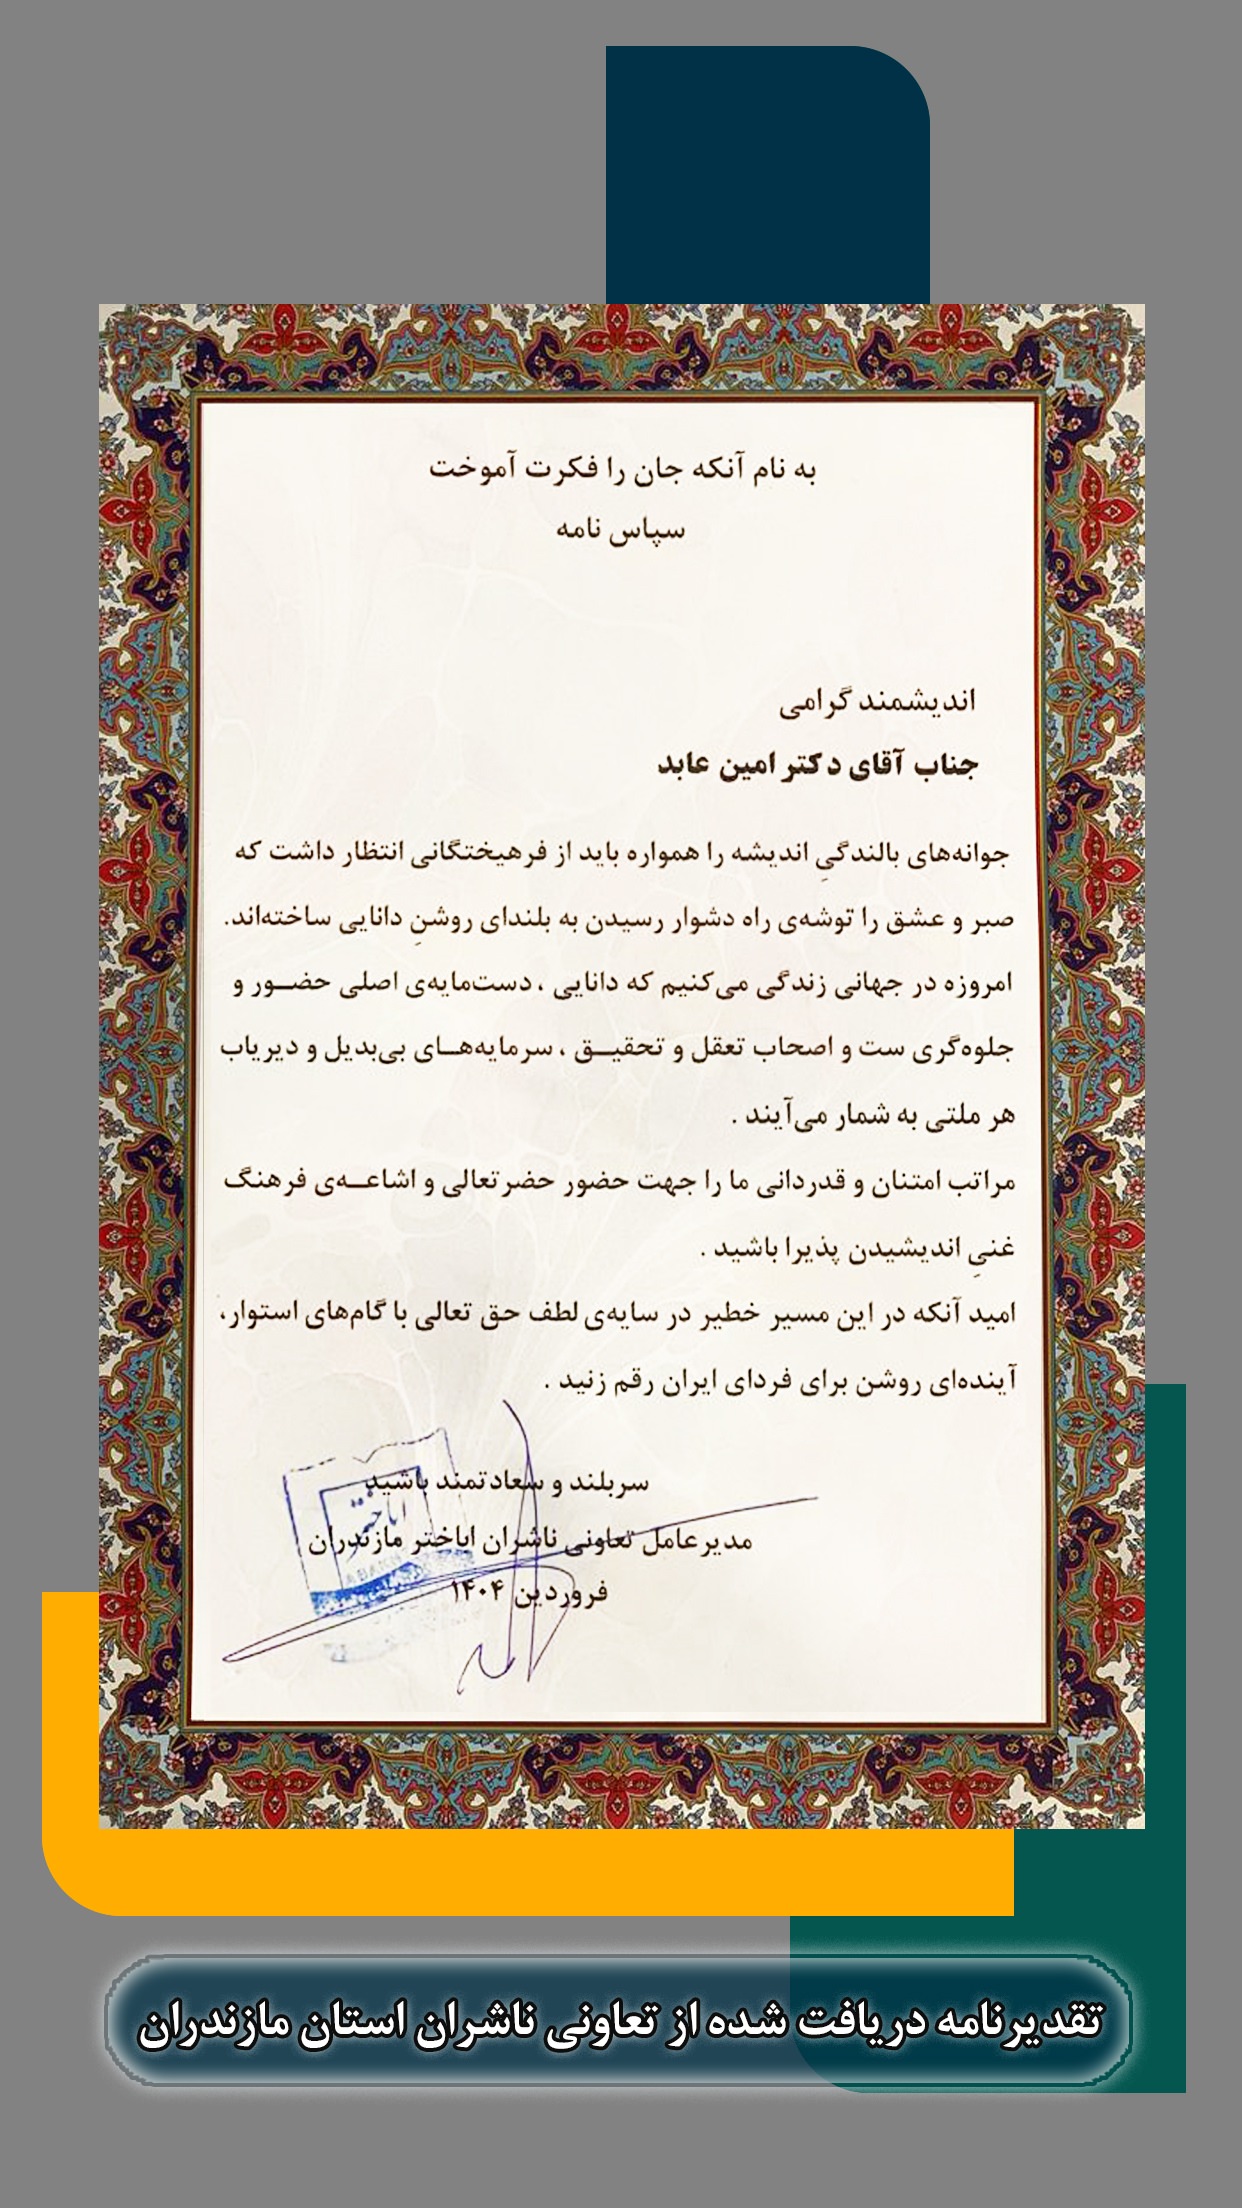 به نام آنکه جان را فکرت آموخت
سپاس نامه
اندیشمند گرامی
جناب آقای دکتر امین عابد
جوانه‌های بالندگیِ اندیشه را همواره باید از فرهیختگانی انتظار داشت که
صبر و عشق را توشه‌ی راه دشوار رسیدن به بلندای روشنِ دانایی ساخته‌اند.
امروزه در جهانی زندگی می‌کنیم که دانایی ، دست‌مایه‌ی اصلی حضــور و
جلوه‌گری ست و اصحاب تعقل و تحقیــق ، سرمایه‌هــای بی‌بدیل و دیریاب
هر ملتی به شمار می‌آیند .
مراتب امتنان و قدردانی ما را جهت حضور حضرتعالی و اشاعــه‌ی فرهنگ
غنیِ اندیشیدن پذیرا باشید .
امید آنکه در این مسیر خطیر در سایه‌ی لطف حق تعالی با گام‌های استوار،
آینده‌ای روشن برای فردای ایران رقم زنید .
سربلند و سعادتمند باشید
مدیرعامل تعاونی ناشران اباختر مازندران
فروردین ۱۴۰۴
اباختر
تقدیرنامه دریافت شده از تعاونی ناشران استان مازندران